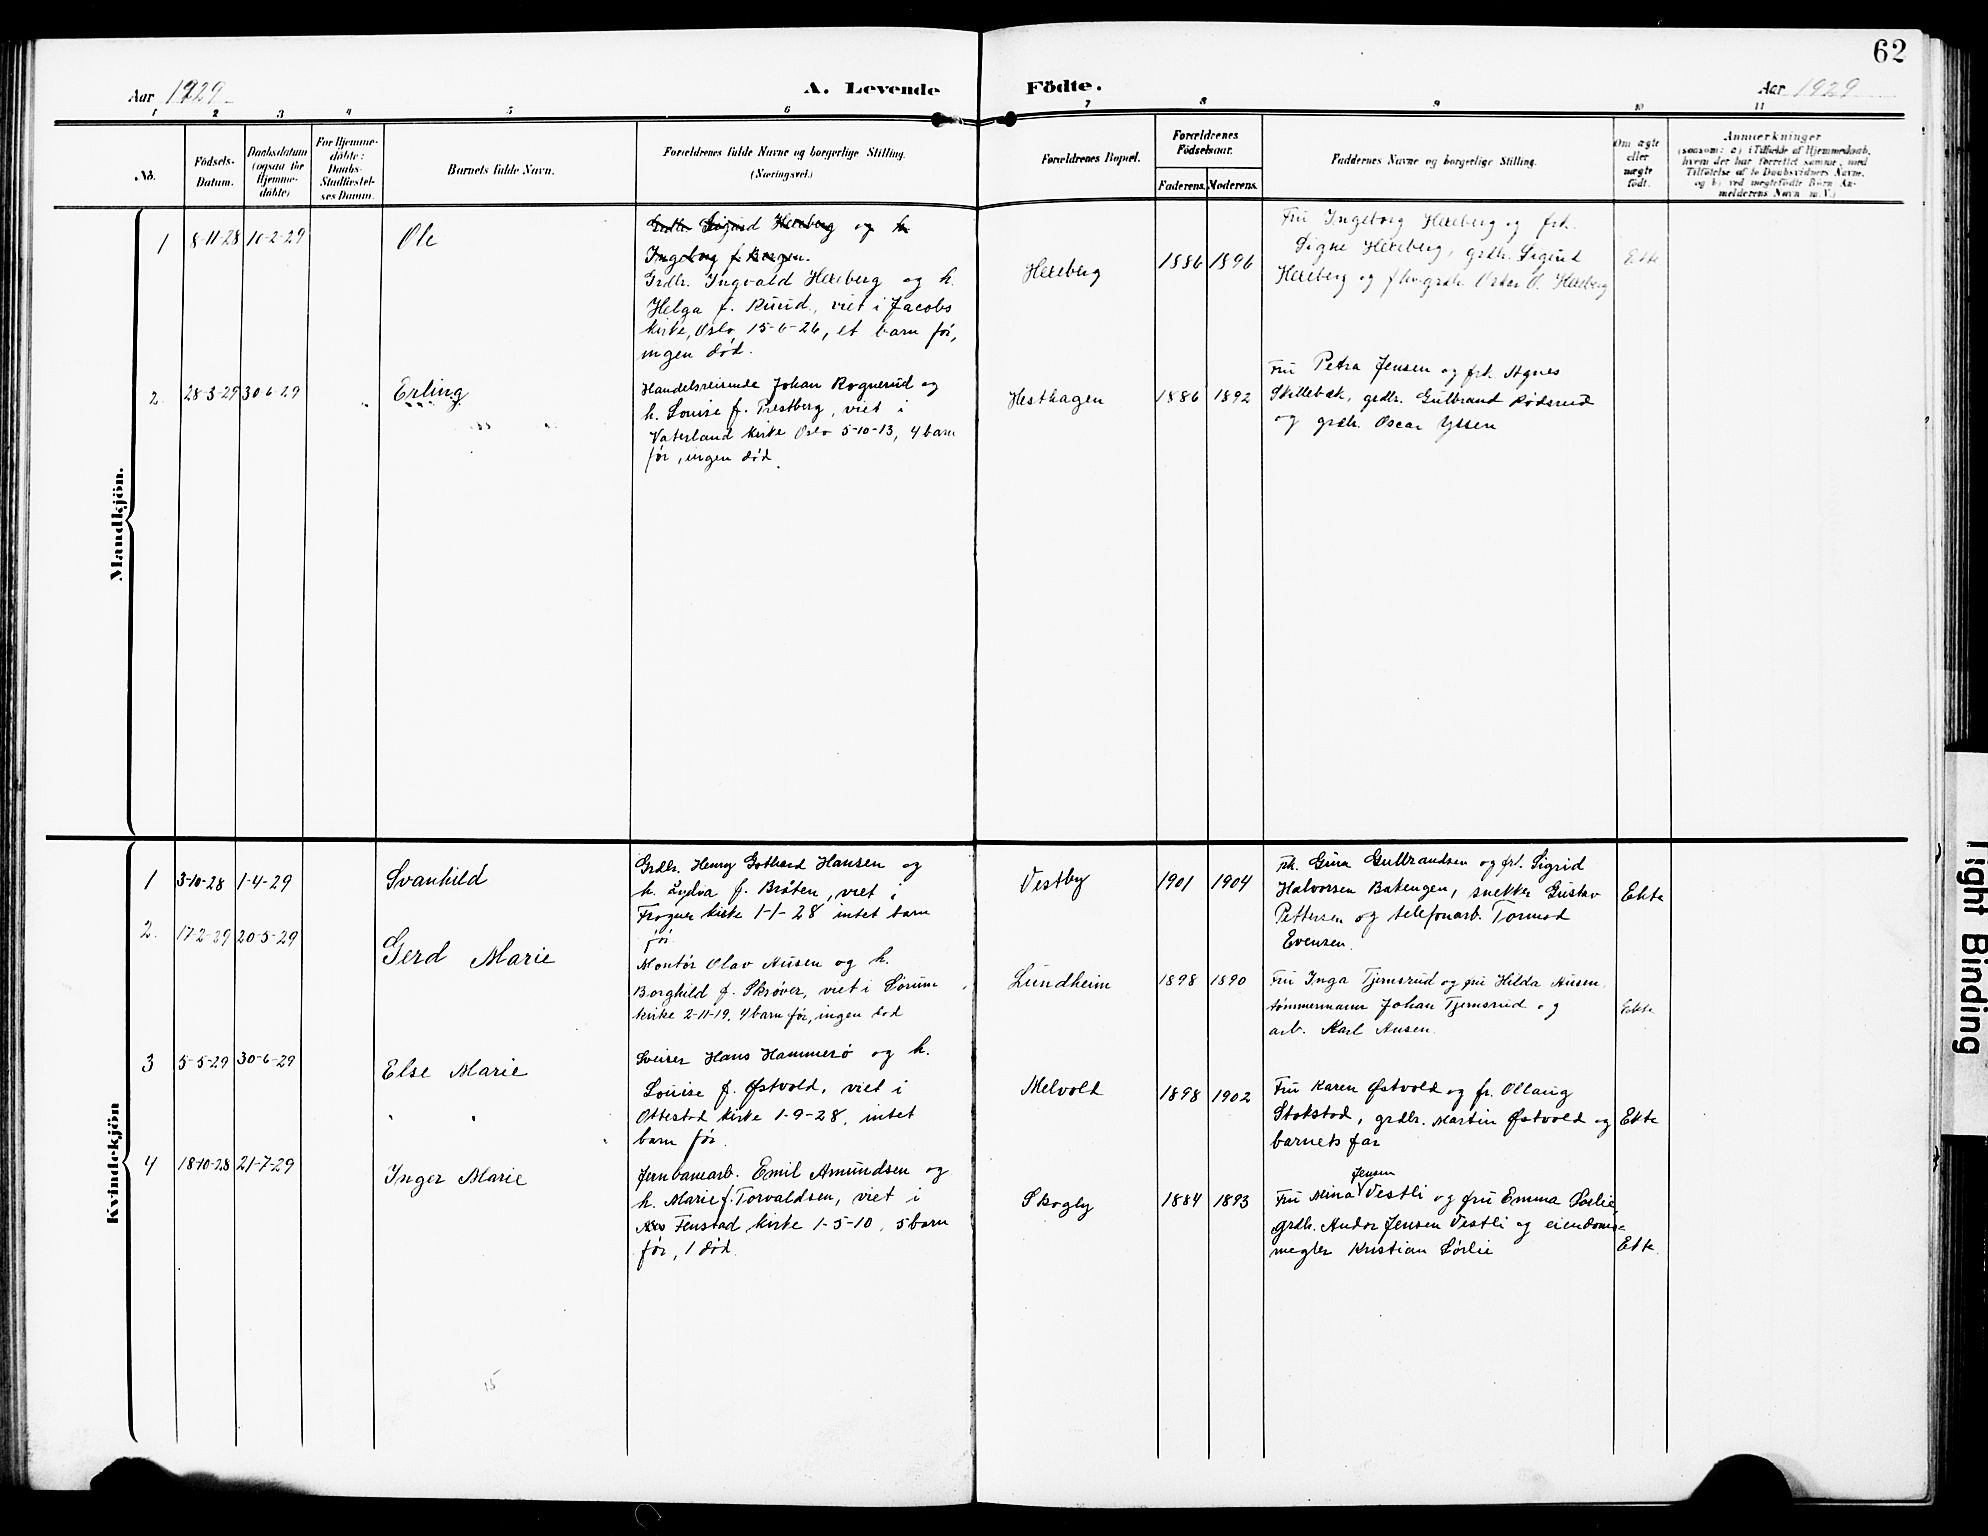 62
Aar 1929
A. Levende
Födte.
Aar 1929
1 2 3 4 5 6 7 8 9 10 11
No.
Födsels-
Datum.
Daabsdatum
(ogsaa for
Hjemme-
döbte)
For Hjemme-
döbte:
Daabs-
Stadfæstel-
ses Datum.
Barnets fulde Navn.
Forældrenes fulde Navne og borgerlige Stilling.
(Næringsvei.)
Forældrenes Bopæl.
Forældrenes
Födselsaar.
Faderens.
Moderens.
Faddernes Navne og borgerlige Stilling.
Om ægte
eller
uægte
födt.
Anmerkninger
(saasom: a) i Tilfælde af Hjemmedaab,
hvem der har forrettet samme, med
Tilföielse af to Daabsvidners Navne,
og b) ved uægtefödte Börn An-
melderens Navn m. V.)
Mandkjön.
1 8-11-28 10-2-29 Ole
Grdbr. Sigurd Hexeberg og h.
Ingeborg f. Borgen.
Grdbr. Ingvald Hexeberg og h.
Helga f. Ruud, viet i Jacobs
kirke, Oslo 15-6-26, et barn før,
ingen død.
Hexeberg 1886 1896
Fru Ingeborg Hexeberg og frk.
Signe Hexeberg, grdbr. Sigurd
Hexeberg og grdbr. Oskar O. Hexeberg
Ekte
2. 28-3-29 30-6-29 Erling
Handelsreisende Johan Rognerud og
h. Louise f. Prestberg, viet i
Vaterland kirke Oslo 5-10-13, 4 barn
før, ingen død.
Hesthagen 1886 1892
Fru Petra Jensen og frk. Agnes
Skillebæk, grdbr. Gulbrand Rødsrud
og grdbr. Oscar Yssen
Kvindekjön
1 3-10-28 1-4-29 Svanhild
Grdbr. Henry Gothard Hansen og
h. Lydva f. Bråten, viet i
Frogner kirke 1-1-28 intet barn
før.
Vestby 1901 1904
Frk. Gina Gulbrandsen og frk. Sigrid
Halvorsen Bakengen, snekker Gustav
Pettersen og telefonarb. Tormod
Evensen.
Ekte
2. 17-2-29 20-5-29 Gerd Marie
Montør Olav Ausen og h.
Borghild f. Skrøver, viet i Sørum
kirke 2-11-19, 4 barn før, ingen død
Lundheim 1898 1890
Fru Inga Tjernsrud og fru Hilda Ausen,
tømmermann Johan Tjernsrud og
arb. Karl Ausen.
Ekte
3 5-5-29 30-6-29 Else Marie
Sveiser Hans Hammerø og h.
Louise f. Østvold, viet i
Ottestad kirke 1-9-28, intet
barn før.
Melvold 1898 1902
Fru Karen Østvold og fr. Ollaug
Stokstad, grdbr. Martin Østvold og
barnets far
Ekte
4 18-10-28 21-7-29 Inger Marie
Jernbanearb. Emil Amundsen og
h. Marie f. Torvaldsen, viet i
Fenstad kirke 1-5-10, 5 barn
før, 1 død.
Skogly 1884 1893
Fru Mina Jensen Vestli og fru Emma Sørlie,
grdbr. Andor Jensen Vestli og eiendoms-
megler Kristian Sørlie
Ekte
15
Tight Binding